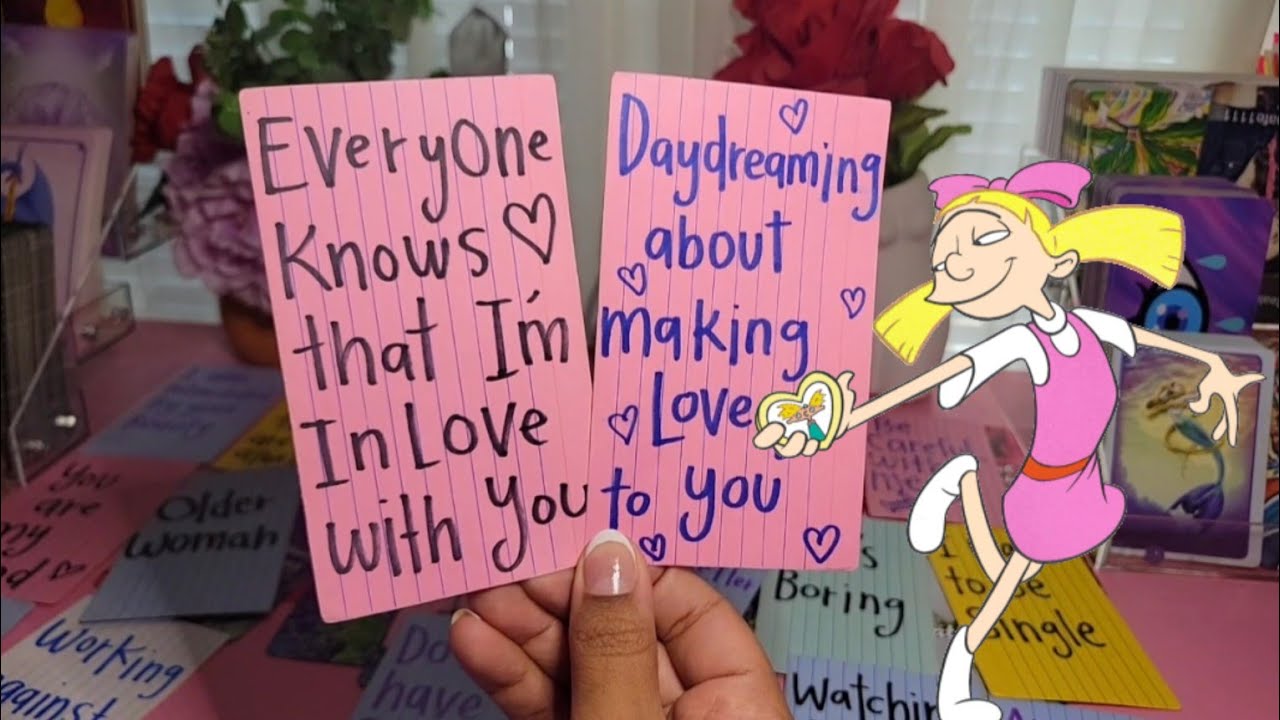 EveryOne
Knows
that I'm
In Love
with You
Daydreaming
about
making
Love
to you
You
are
my
Older
Woman
Working
against
Do
have
Be
Careful
with
me
Boring
I
to be
Single